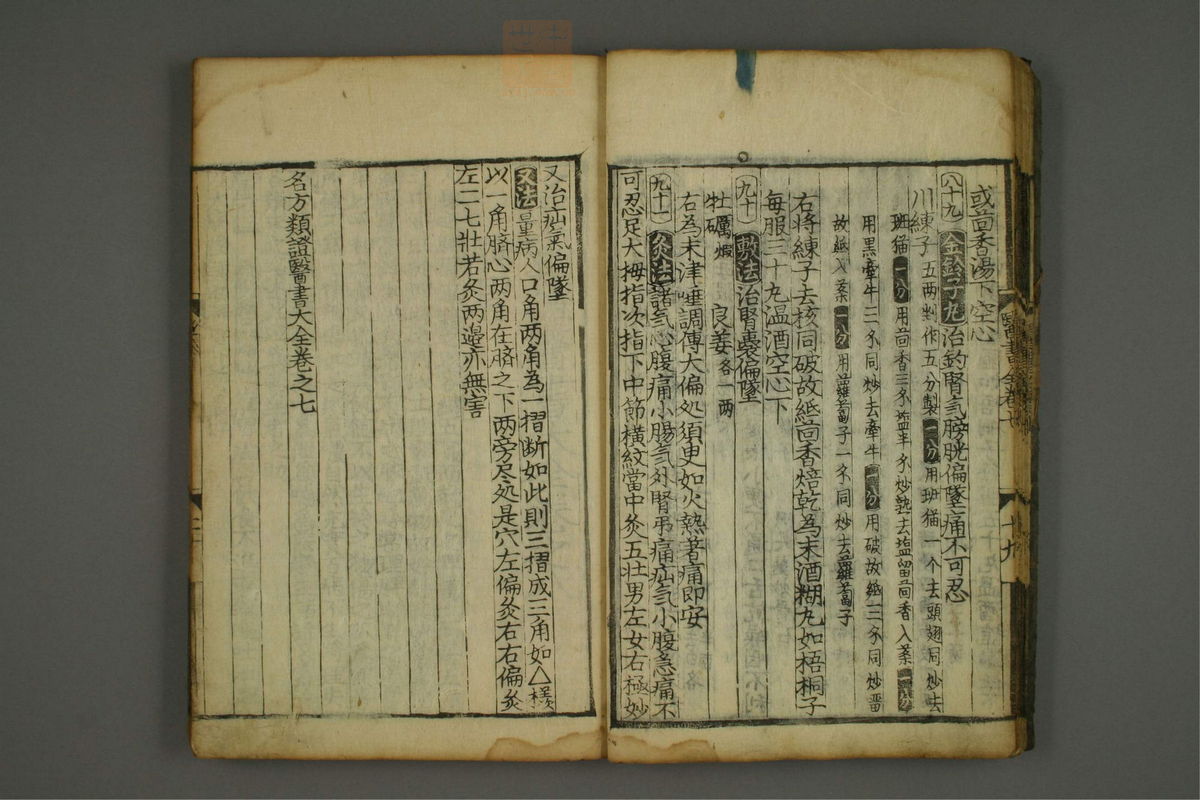 或茴香湯下空心
八十九 金鈴子丸 治釣腎氣膀胱偏墜痛不可忍
川練子 五两剉作五分製 一分 用班猫一个去頭翅同炒去
班猫 一分 用茴香三匁塩半匁炒熟去塩留茴香入薬 一分
用黑牽牛三匁同炒去牽牛 一分 用破故紙三匁同炒留
故紙入薬 一分 用蘿蔔子一匁同炒去蘿蔔子
右将練子去核同破故紙茴香焙乾為末酒糊丸如梧桐子
每服三十丸温酒空心下
九十 敷法 治腎囊偏墜
牡礪 煆 良姜 各一两
右為末津唾調傅大偏処須臾如火熱著痛即安
九十一 灸法 諸氣心腹痛小腸氣外腎弔痛疝氣小腹急痛不
可忍足大拇指次指下中節橫紋當中灸五壮男左女右極妙
又治疝氣偏墜
又法 量病人口角两角為一摺断如此則三摺成三角如△樣
以一角臍心两角在臍之下两旁尽処是穴左偏灸右右偏灸
左二七壮若灸两邉亦無害
名方類證醫書大全卷之七